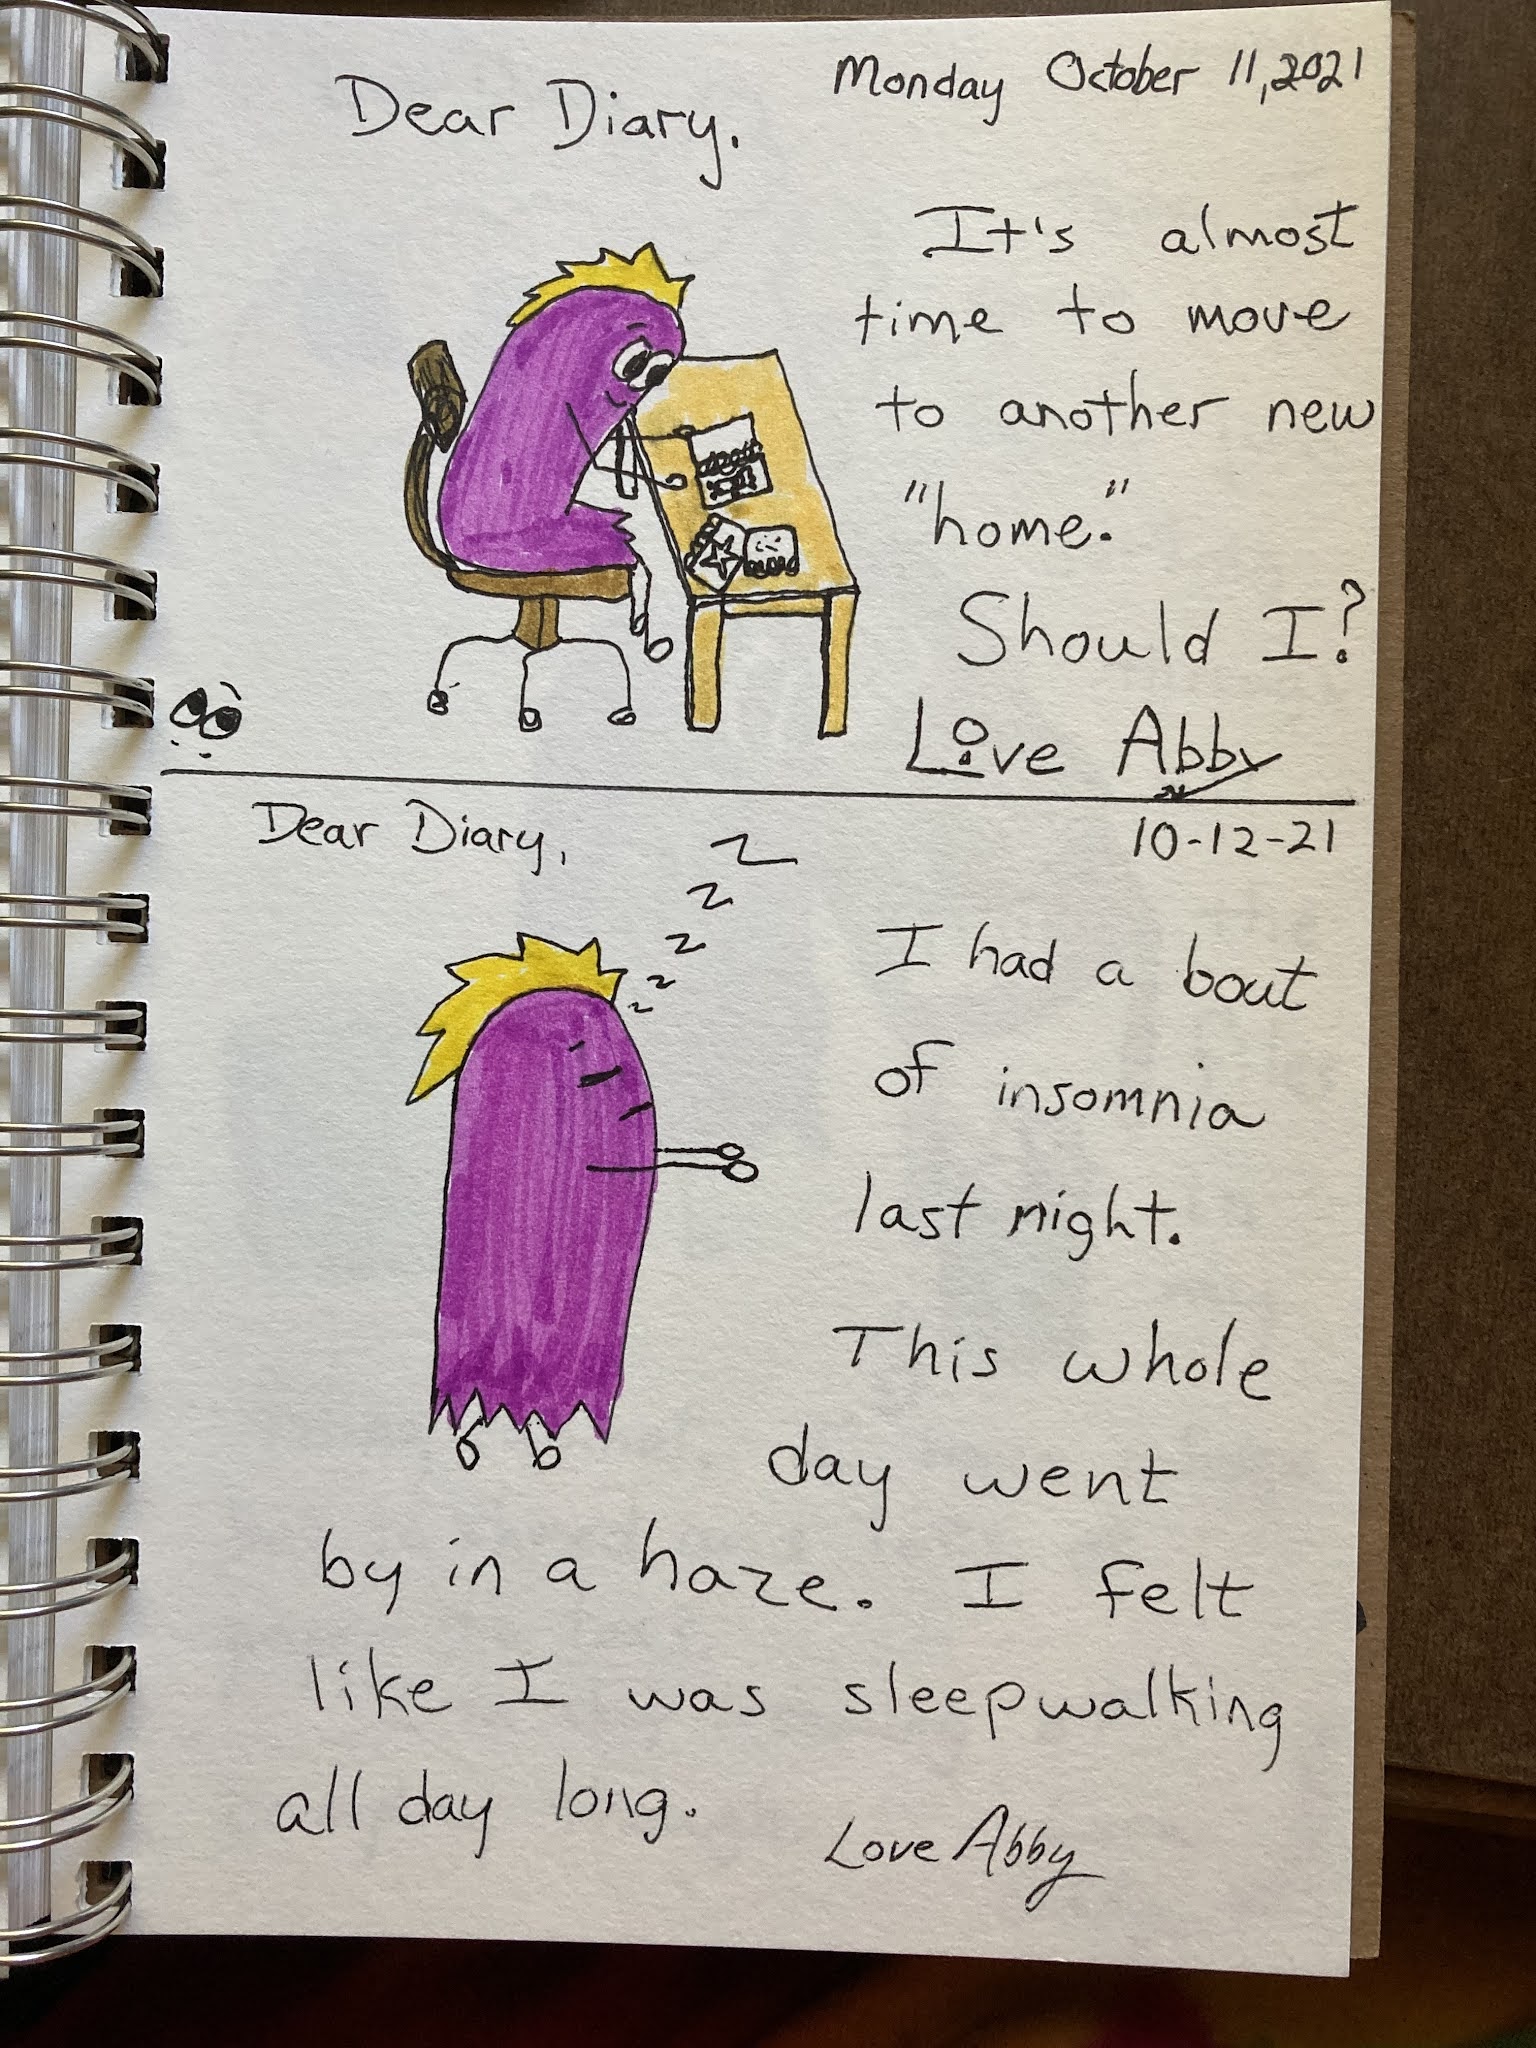 Dear Diary.
Monday October 11, 2021
It's almost
time to move
to another new
"home."
Should I?
Love Abby
Dear Diary,
10-12-21
z z z z z
I had a bout
of insomnia
last night.
This whole
day went
by in a haze. I felt
like I was sleepwalking
all day long.
Love Abby